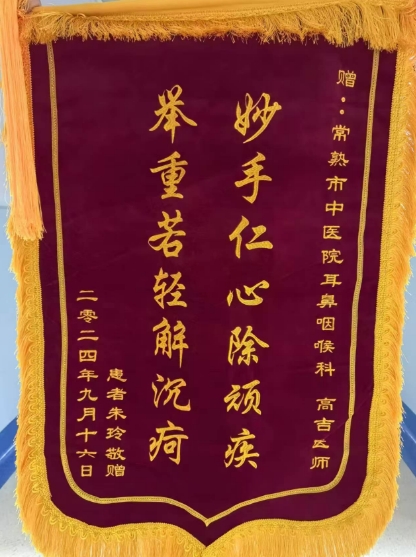 赠：常熟市中医院耳鼻咽喉科 高吉医师
妙手仁心除顽疾
举重若轻解沉疴
患者朱玲敬赠
二零二四年九月十六日